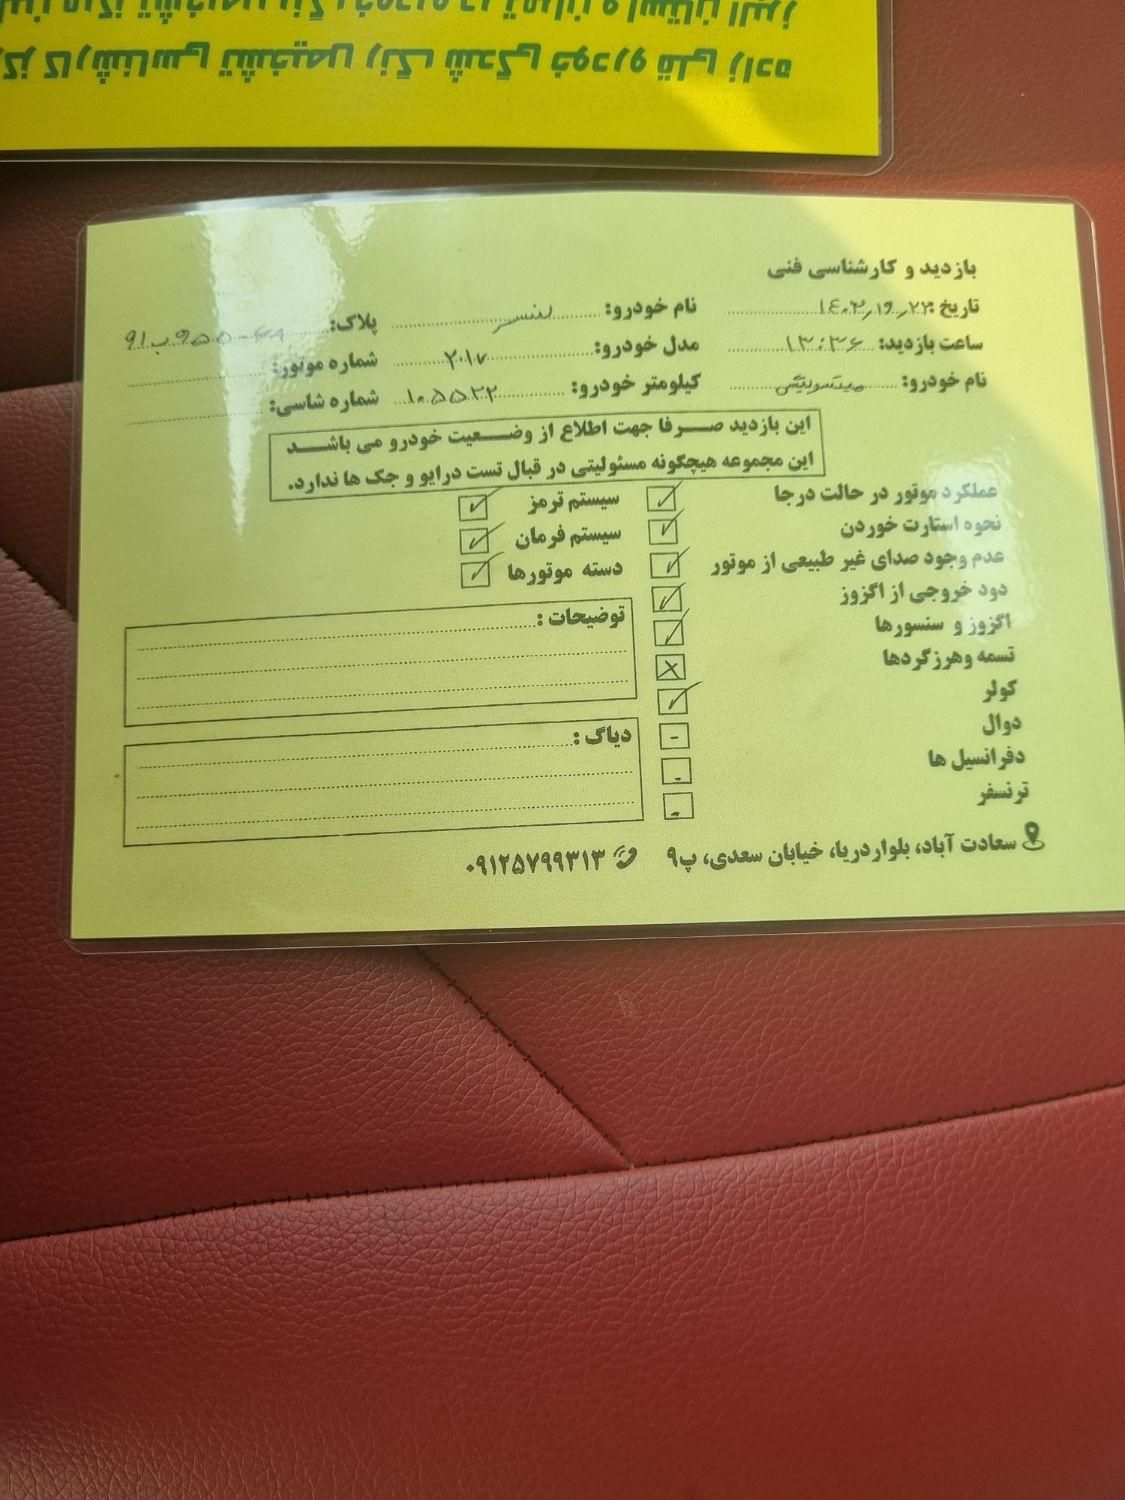 مرکز کارشناسی تشخیص رنگ شدگی خودرو قلی زاده
بازدید و کارشناسی فنی
تاریخ: ۱۴۰۳٫۱۹٫۲۳ نام خودرو: لنسر پلاک:
ساعت بازدید: ۱۳:۳۶ مدل خودرو: ۲۰۱۷ شماره موتور:
نام خودرو: میتسوبیشی کیلومتر خودرو: ۱۰۵۵۳۲ شماره شاسی:
این بازدید صرفا جهت اطلاع از وضعیت خودرو می باشد
این مجموعه هیچگونه مسئولیتی در قبال تست درایو و جک ها ندارد.
عملکرد موتور در حالت درجا ✓ سیستم ترمز ✓
نحوه استارت خوردن ✓ سیستم فرمان ✓
عدم وجود صدای غیر طبیعی از موتور ✓ دسته موتورها ✓
دود خروجی از اگزوز ✓
اگزوز و سنسورها ✓
تسمه وهرزگردها ×
کولر ✓
دوال -
دفرانسیل ها -
ترنسفر -
توضیحات :
دیاگ :
سعادت آباد، بلواردریا، خیابان سعدی، پ۹ ۰۹۱۲۵۷۹۹۳۱۳